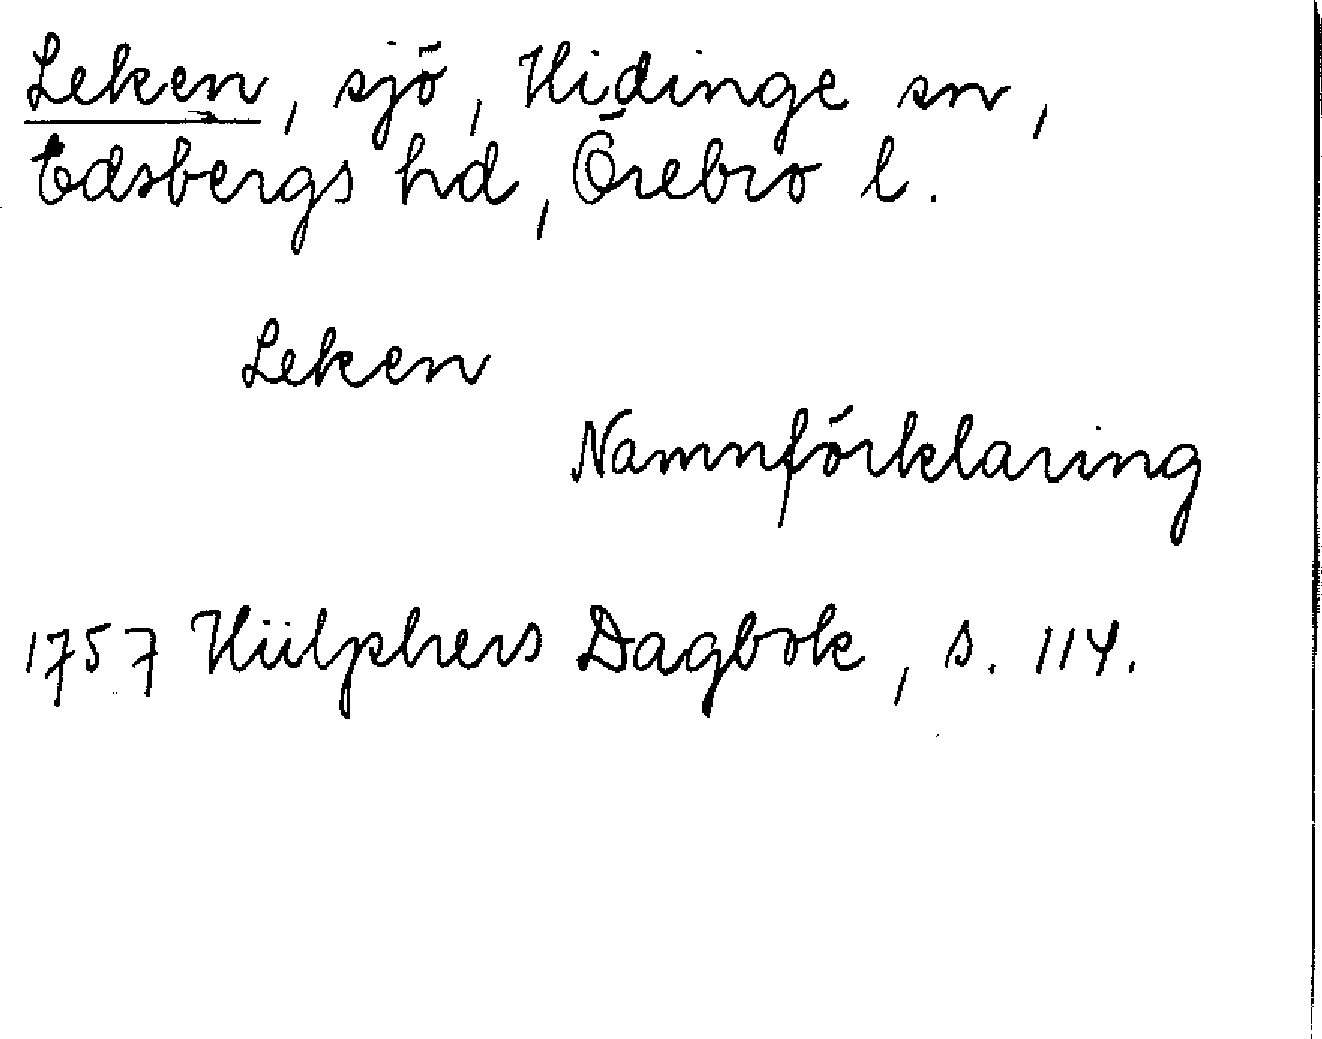 Leken, sjö, Hidinge sn,
Edsbergs hd, Örebro l.
Leken
Namnförklaring
1757 Hülphers Dagbok, s. 114.